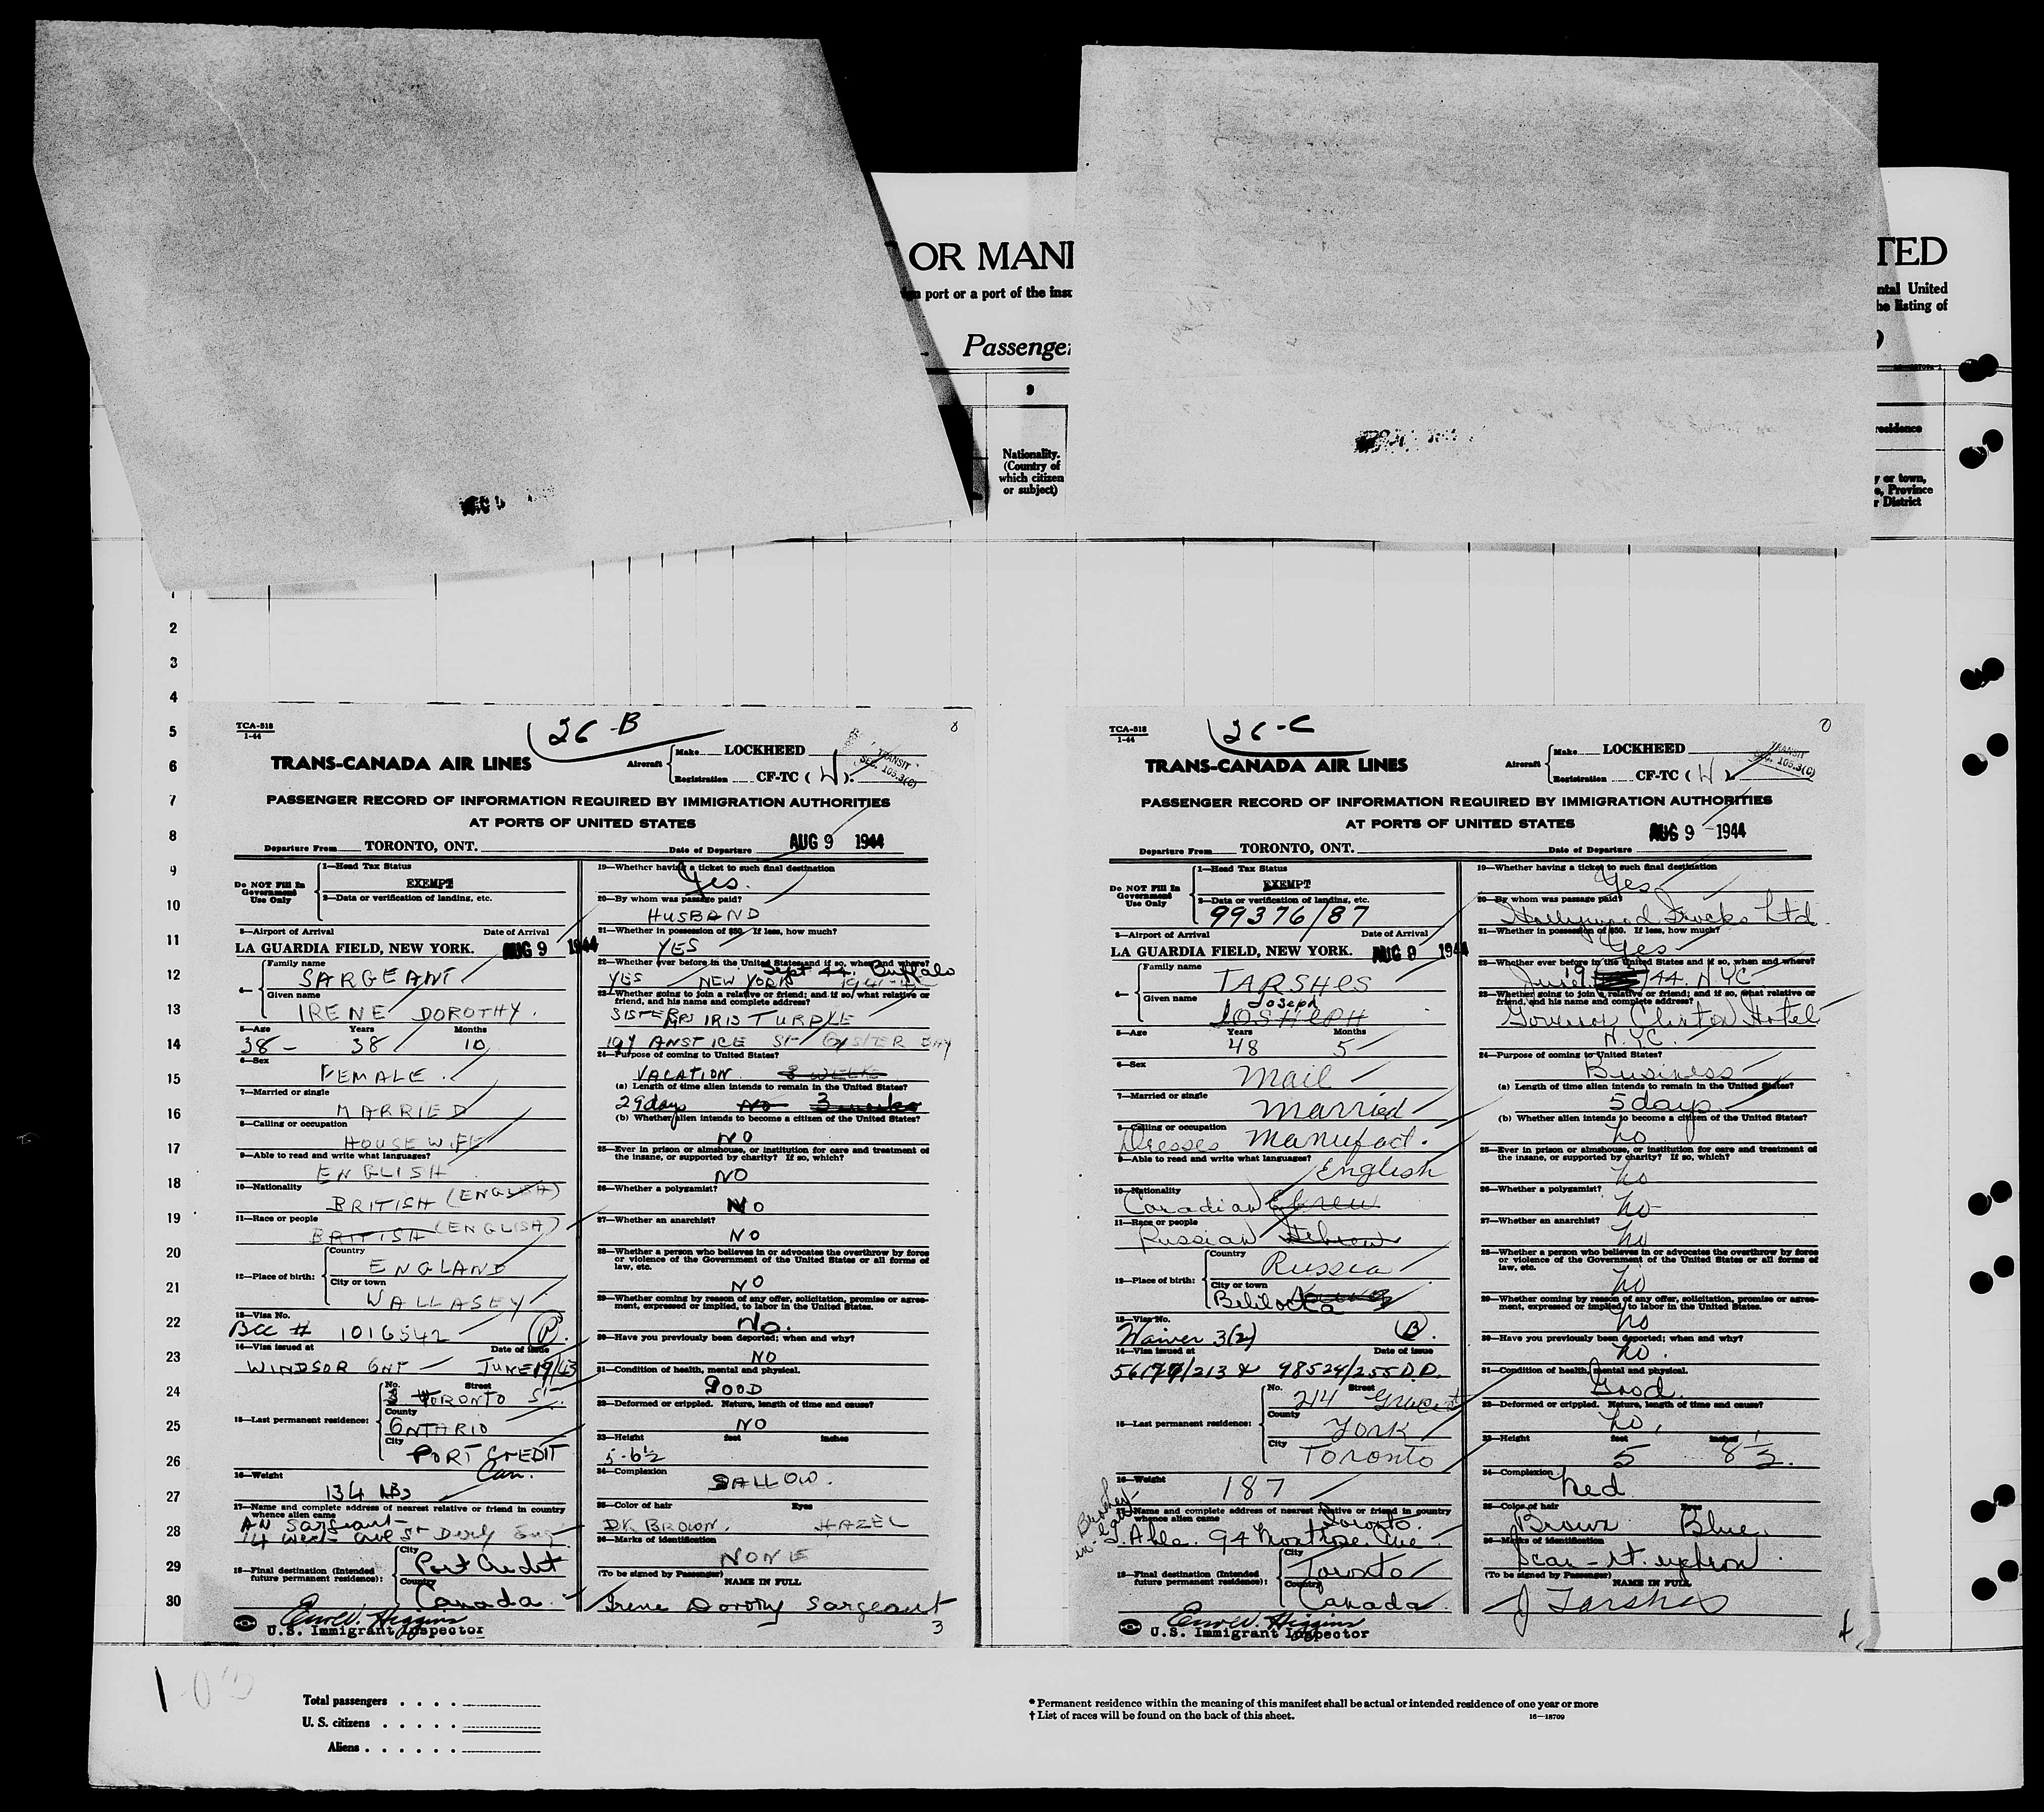 OR MANI
TED
port or a part of the inst
ntal United
he listing of
Passenge
9
Nationality.
(Country of
which citizen
or subject)
residence
y or town,
e, Province
r District
1
2
3
4
5
6
7
8
9
10
11
12
13
14
15
16
17
18
19
20
21
22
23
24
25
26
27
28
29
30
TCA-518
1-44
26-B
TRANS-CANADA AIR LINES
Aircraft
Make LOCKHEED
Registration CF-TC (W).
TRANSIT
SEC. 105.3(C)
PASSENGER RECORD OF INFORMATION REQUIRED BY IMMIGRATION AUTHORITIES
AT PORTS OF UNITED STATES
Departure From TORONTO, ONT. Date of Departure AUG 9 1944
Do NOT Fill In
Government
Use Only
1—Head Tax Status
EXEMPT
2—Data or verification of landing, etc.
3—Airport of Arrival Date of Arrival
LA GUARDIA FIELD, NEW YORK. AUG 9 1944
4— Family name
SARGEANT
Given name
IRENE DOROTHY.
5—Age Years Months
38 - 38 10
6—Sex
FEMALE.
7—Married or single
MARRIED
8—Calling or occupation
HOUSEWIFE
9—Able to read and write what languages?
ENGLISH
10—Nationality
BRITISH (ENGLISH)
11—Race or people
BRITISH (ENGLISH)
12—Place of birth:
Country
ENGLAND
City or town
WALLASEY
13—Visa No.
BCC # 1016542 (P).
14—Visa issued at Date of issue
WINDSOR ONT — JUNE 19/43
15—Last permanent residence:
No. Street
TORONTO St.
County
ONTARIO
City
PORT CREDIT
Can.
16—Weight
134 LBS
17—Name and complete address of nearest relative or friend in country
whence alien came
AN Sargeant
14 West Ave St Derby Eng
18—Final destination (Intended
future permanent residence):
City
Port Credit
Country
Canada
U.S. Immigrant Inspector
19—Whether having a ticket to such final destination
Yes.
20—By whom was passage paid?
HUSBAND
21—Whether in possession of $50. If less, how much?
YES
22—Whether ever before in the United States and if so, when and where?
Sept 44. Buffalo
YES NEW YORK
23—Whether going to join a relative or friend; and if so, what relative or
friend, and his name and complete address?
SISTER MRS IRIS TURPLE
197 ANSTICE St OYSTER BAY
24—Purpose of coming to United States?
VACATION 3 WEEKS
(a) Length of time alien intends to remain in the United States?
29 days No 3 weeks
(b) Whether alien intends to become a citizen of the United States?
NO
25—Ever in prison or almshouse, or institution for care and treatment of
the insane, or supported by charity? If so, which?
NO
26—Whether a polygamist?
NO
27—Whether an anarchist?
NO
28—Whether a person who believes in or advocates the overthrow by force
or violence of the Government of the United States or all forms of
law, etc.
NO
29—Whether coming by reason of any offer, solicitation, promise or agree-
ment, expressed or implied, to labor in the United States.
No.
30—Have you previously been deported; when and why?
NO
31—Condition of health, mental and physical.
GOOD
32—Deformed or crippled. Nature, length of time and cause?
NO
33—Height feet inches
5-6½
34—Complexion
SALLOW.
35—Color of hair Eyes
DK. BROWN. HAZEL
36—Marks of identification
NONE
(To be signed by Passenger)
NAME IN FULL
Irene Dorothy Sargeant
3
TCA-518
1-44
26-C
TRANS-CANADA AIR LINES
Aircraft
Make LOCKHEED
Registration CF-TC (W)
TRANSIT
SEC. 105.3(C)
PASSENGER RECORD OF INFORMATION REQUIRED BY IMMIGRATION AUTHORITIES
AT PORTS OF UNITED STATES
Departure From TORONTO, ONT. Date of Departure AUG 9 1944
Do NOT Fill In
Government
Use Only
1—Head Tax Status
EXEMPT
2—Data or verification of landing, etc.
99376/87
3—Airport of Arrival Date of Arrival
LA GUARDIA FIELD, NEW YORK. AUG 9 1944
4— Family name
TARSHES
Given name
Joseph
5—Age Years Months
48 5
6—Sex
Mail
7—Married or single
Married
8—Calling or occupation
Dresses Manufact.
9—Able to read and write what languages?
English
10—Nationality
Canadian Hebrew
11—Race or people
Russian Hebrew
12—Place of birth:
Country
Russia
City or town
13—Visa No.
Waiver 3(2) (B).
14—Visa issued at Date of issue
56177/213 & 98524/255 D.D.
15—Last permanent residence:
No. Street
214 Grace St
County
York
City
Toronto
16—Weight
187
17—Name and complete address of nearest relative or friend in country
whence alien came
Brother
in-law
Toronto.
94 Montrose Ave
18—Final destination (Intended
future permanent residence):
City
Toronto
Country
Canada
U.S. Immigrant Inspector
19—Whether having a ticket to such final destination
Yes
20—By whom was passage paid?
Hollywood Frocks Ltd.
21—Whether in possession of $50. If less, how much?
Yes
22—Whether ever before in the United States and if so, when and where?
June 19 44. N.Y.C
23—Whether going to join a relative or friend; and if so, what relative or
friend, and his name and complete address?
Governor Clinton Hotel
N.Y.C.
24—Purpose of coming to United States?
Business
(a) Length of time alien intends to remain in the United States?
5 days
(b) Whether alien intends to become a citizen of the United States?
no
25—Ever in prison or almshouse, or institution for care and treatment of
the insane, or supported by charity? If so, which?
no
26—Whether a polygamist?
no
27—Whether an anarchist?
no
28—Whether a person who believes in or advocates the overthrow by force
or violence of the Government of the United States or all forms of
law, etc.
no
29—Whether coming by reason of any offer, solicitation, promise or agree-
ment, expressed or implied, to labor in the United States.
no
30—Have you previously been deported; when and why?
no.
31—Condition of health, mental and physical.
Good.
32—Deformed or crippled. Nature, length of time and cause?
no.
33—Height feet inches
5 8½.
34—Complexion
Red
35—Color of hair Eyes
Brown Blue
36—Marks of identification
Scar - rt.
(To be signed by Passenger)
NAME IN FULL
J Tarshes
4
Total passengers . . . .
U. S. citizens . . . . .
Aliens . . . . . .
* Permanent residence within the meaning of this manifest shall be actual or intended residence of one year or more
† List of races will be found on the back of this sheet.
16—18709